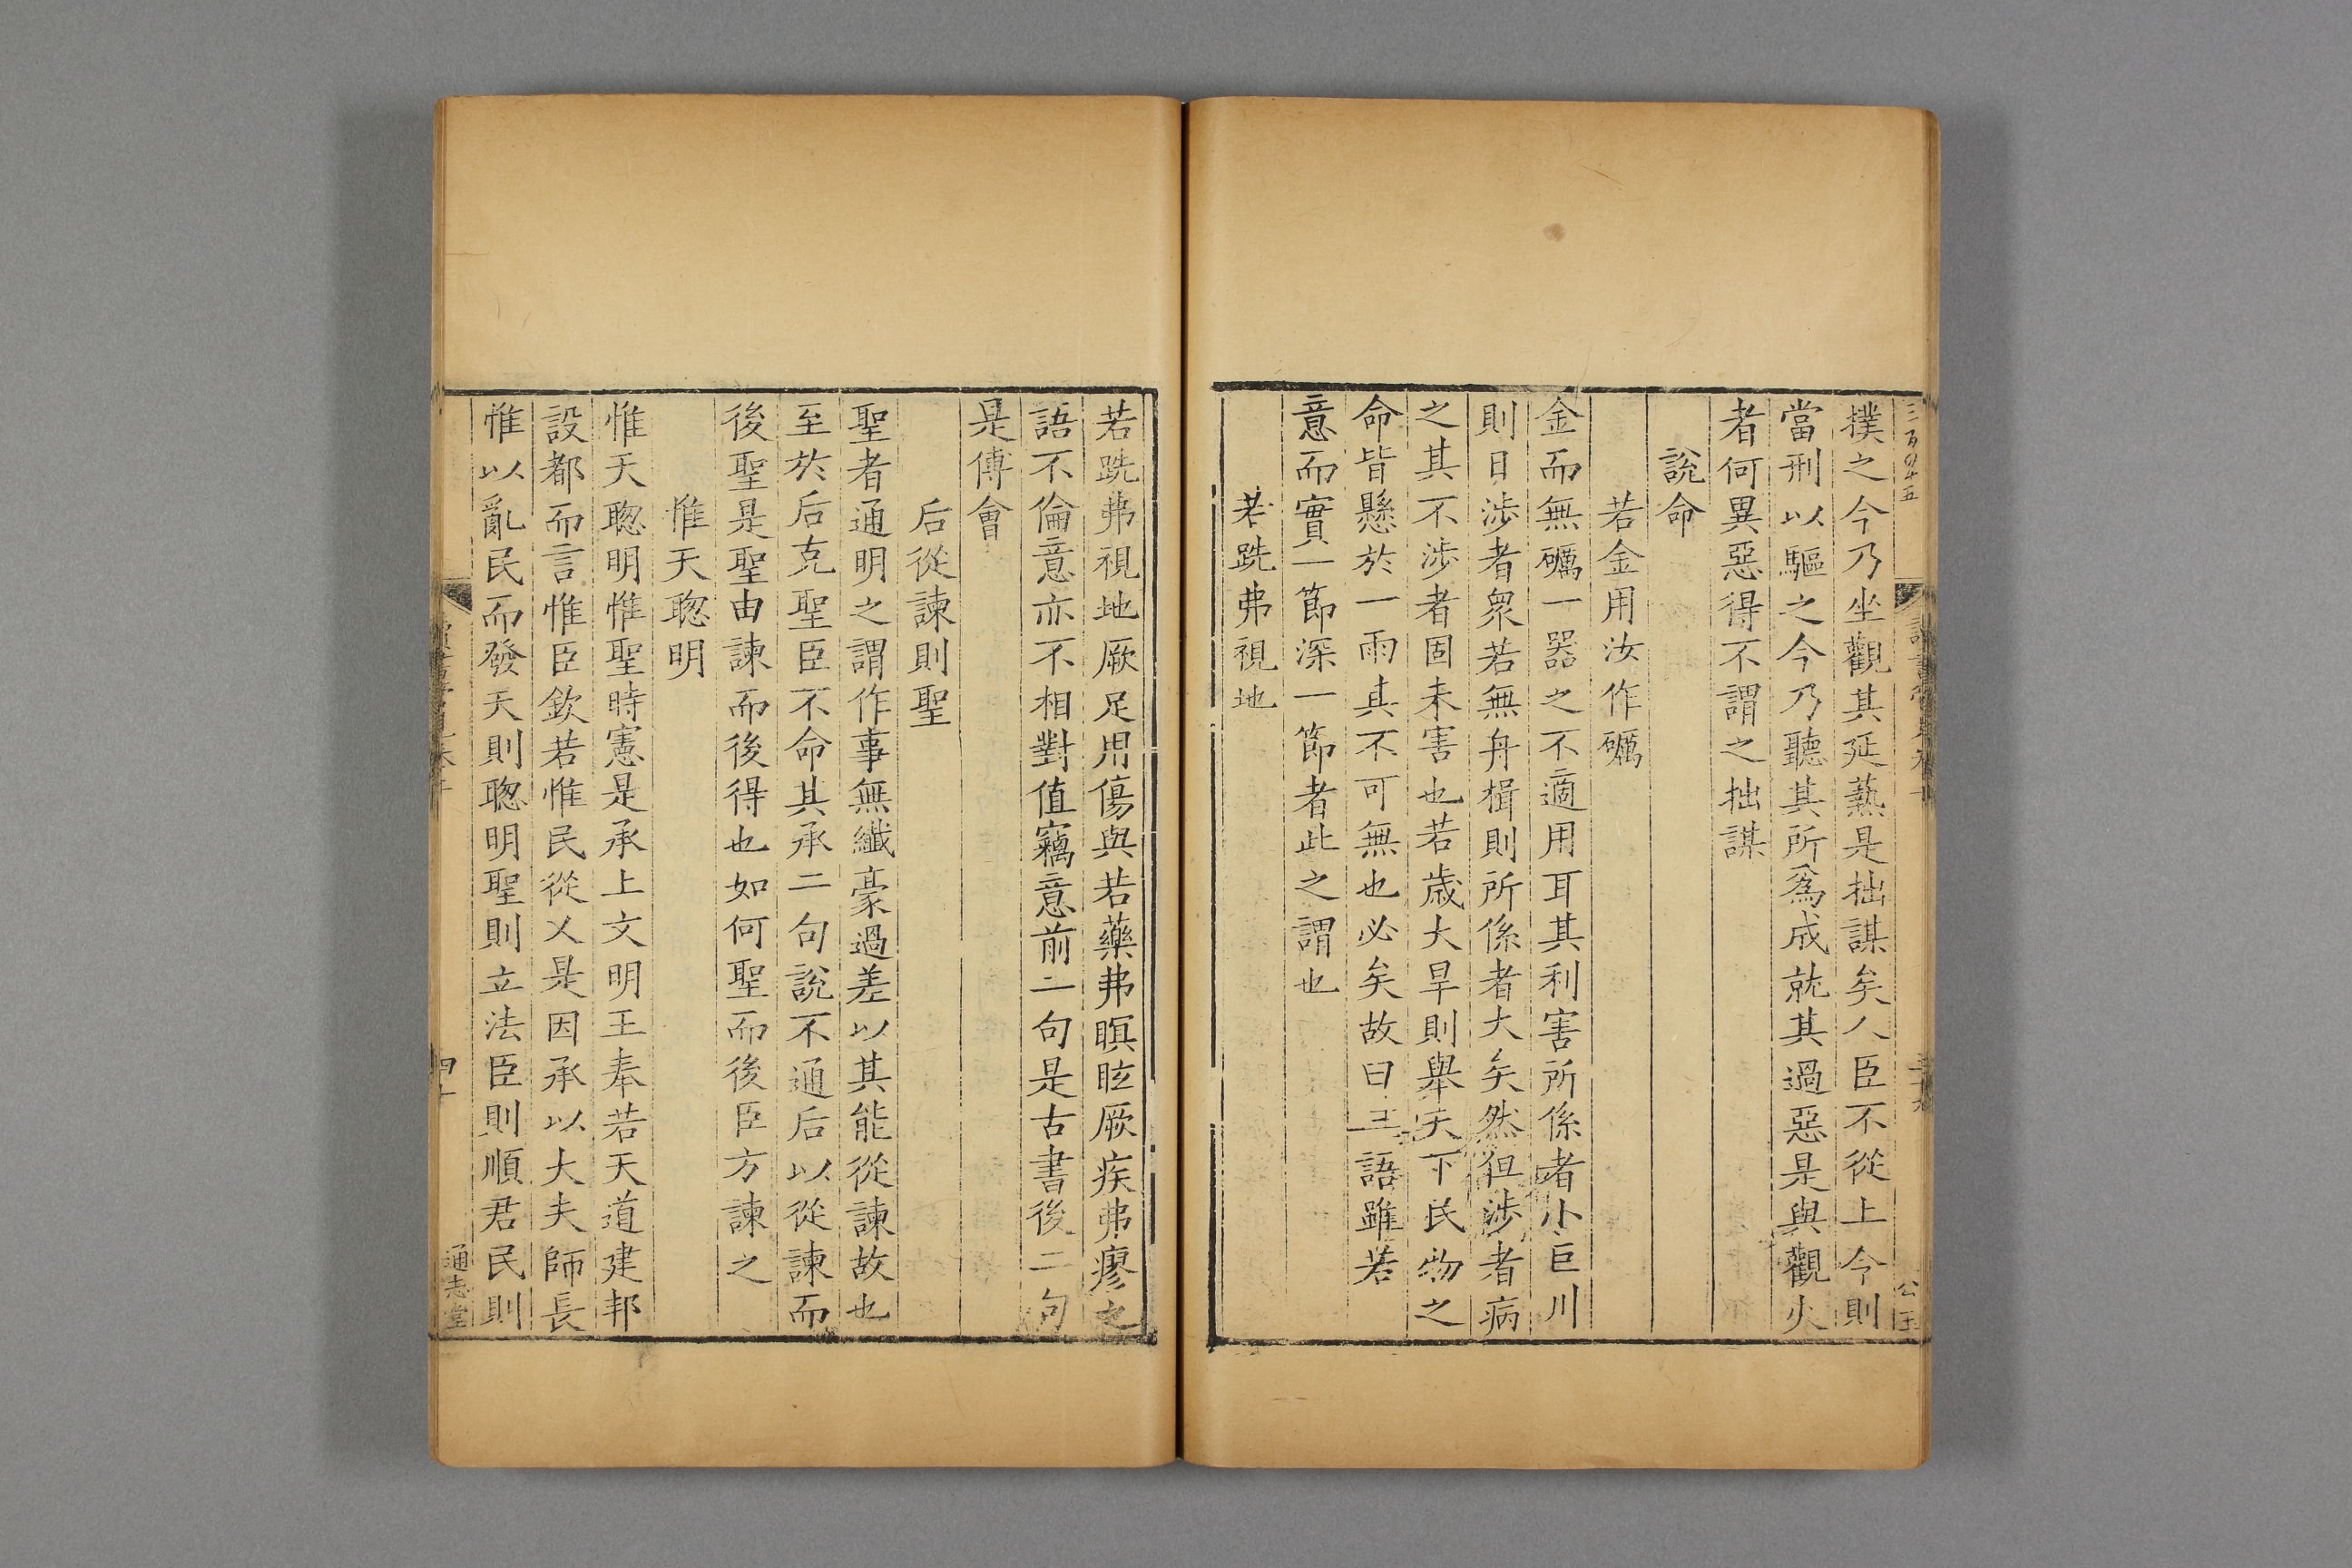 三百四十五
撲之今乃坐觀其延爇是拙謀矣人臣不從上今則
當刑以驅之今乃聽其所爲成就其過惡是與觀火
者何異惡得不謂之拙謀
說命
若金用汝作礪
金而無礪一器之不適用耳其利害所係者小巨川
則日涉者衆若無舟楫則所係者大矣然徂涉者病
之其不涉者固未害也若歲大旱則舉天下民物之
命皆懸於一雨其不可無也必矣故曰三語雖若
意而實一節深一節者此之謂也
若跣弗視地
若跣弗視地厥足用傷與若藥弗瞑眩厥疾弗瘳之
語不倫意亦不相對值竊意前二句是古書後二句
是傅會
后從諫則聖
聖者通明之謂作事無纖豪過差以其能從諫故也
至於后克聖臣不命其承二句說不通后以從諫而
後聖是聖由諫而後得也如何聖而後臣方諫之
惟天聦明
惟天聦明惟聖時憲是承上文明王奉若天道建邦
設都而言惟臣欽若惟民從乂是因承以大夫師長
惟以亂民而發天則聦明聖則立法臣則順君民則
通志堂